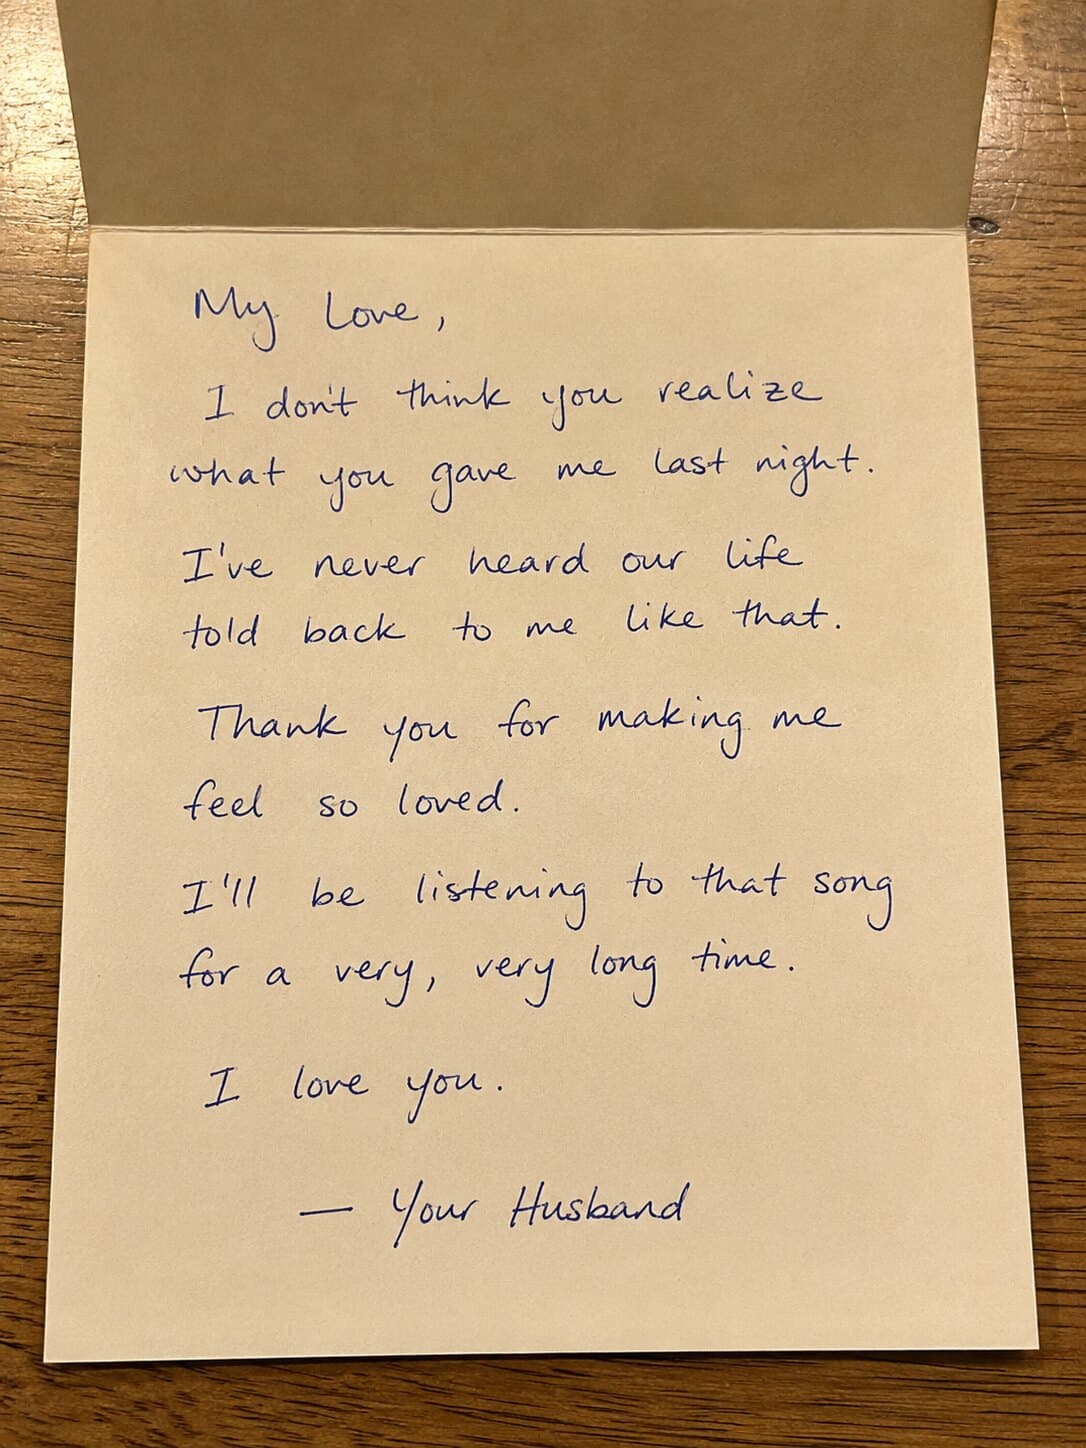 My Love,
I don't think you realize
what you gave me last night.
I've never heard our life
told back to me like that.
Thank you for making me
feel so loved.
I'll be listening to that song
for a very, very long time.
I love you.
— Your Husband